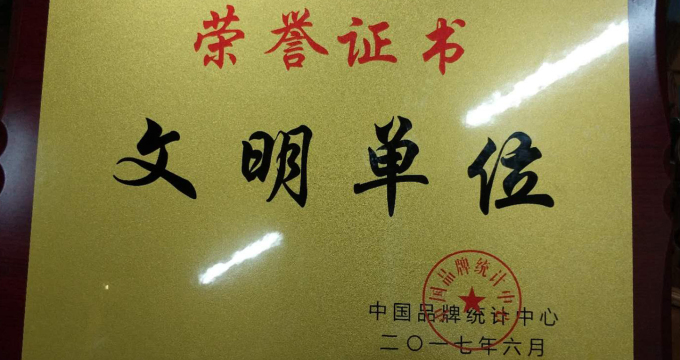 荣誉证书
文明单位
中国品牌统计中心
中国品牌统计中心
二〇一七年六月